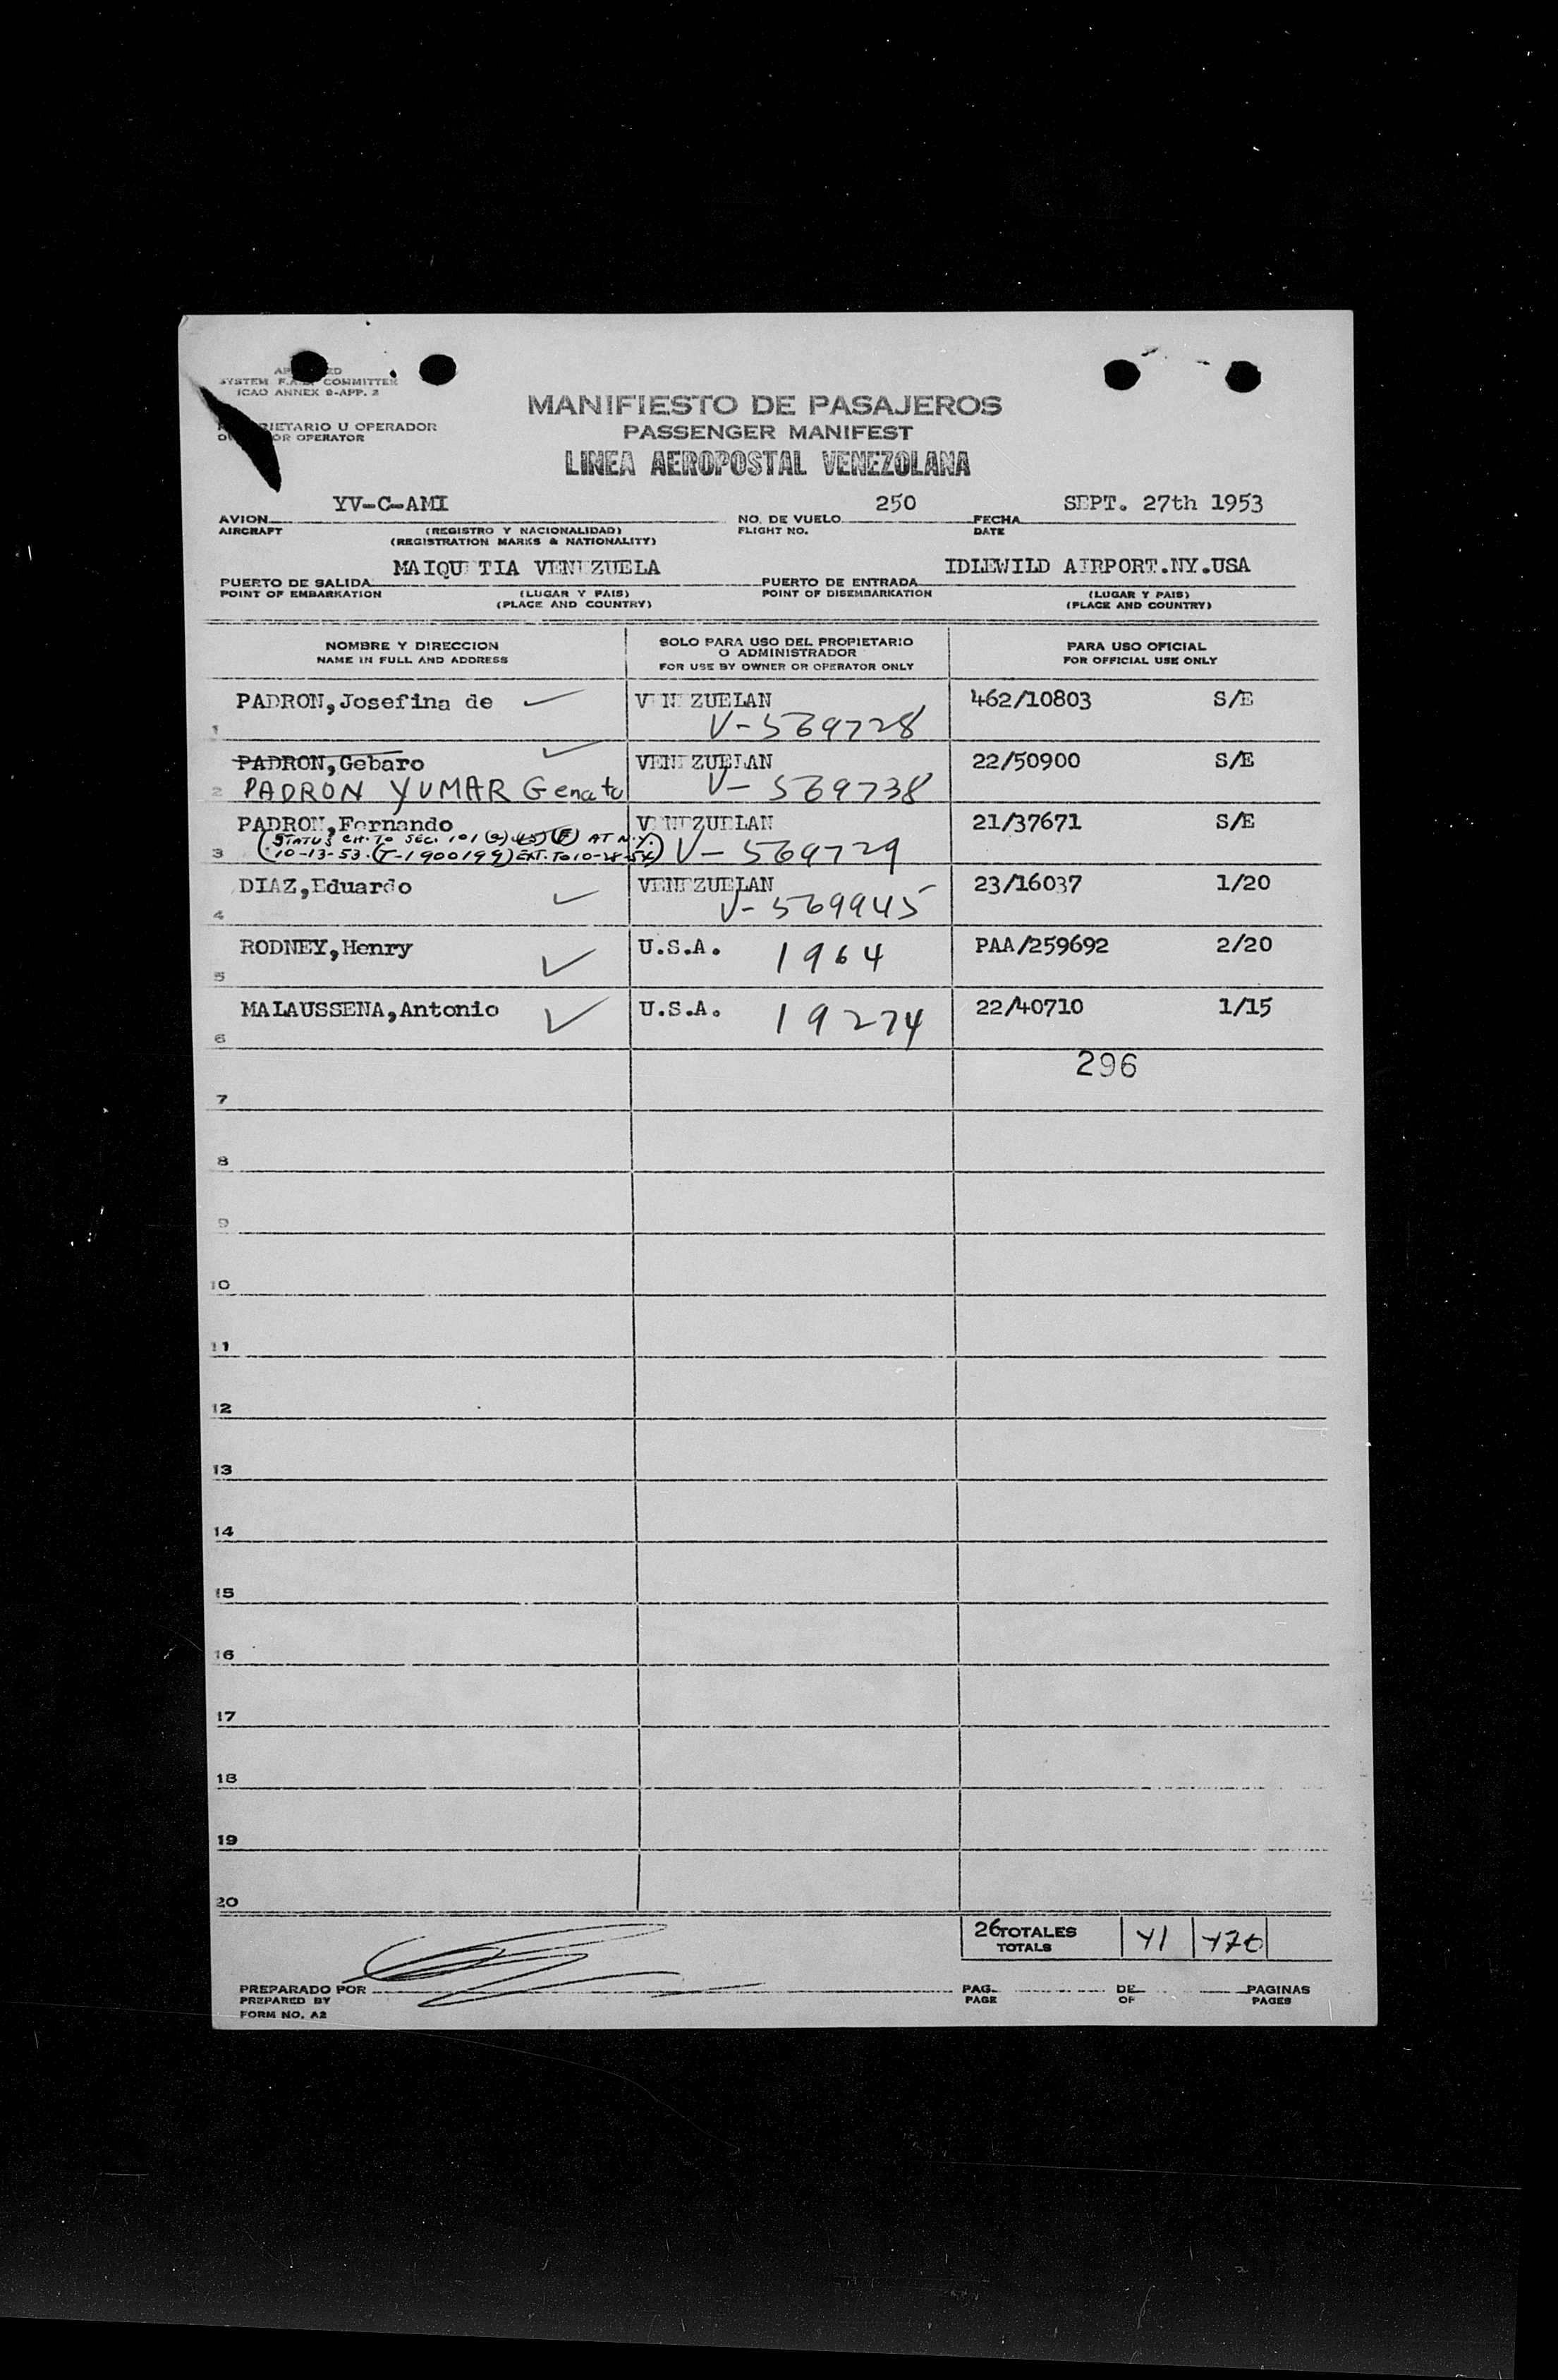 SYSTEM F.A.L. COMMITTEE
ICAO ANNEX 9-APP. 2
MANIFIESTO DE PASAJEROS
PASSENGER MANIFEST
LINEA AEROPOSTAL VENEZOLANA
U OPERADOR
OR OPERATOR
YV-C-AMI 250 SEPT. 27th 1953
AVION NO. DE VUELO FECHA
AIRCRAFT (REGISTRO Y NACIONALIDAD) FLIGHT NO. DATE
(REGISTRATION MARKS & NATIONALITY)
MAIQUETIA VENEZUELA IDLEWILD AIRPORT.NY.USA
PUERTO DE SALIDA PUERTO DE ENTRADA
POINT OF EMBARKATION (LUGAR Y PAIS) POINT OF DISEMBARKATION (LUGAR Y PAIS)
(PLACE AND COUNTRY) (PLACE AND COUNTRY)
NOMBRE Y DIRECCION SOLO PARA USO DEL PROPIETARIO PARA USO OFICIAL
NAME IN FULL AND ADDRESS O ADMINISTRADOR FOR OFFICIAL USE ONLY
FOR USE BY OWNER OR OPERATOR ONLY
PADRON,Josefina de VENEZUELAN 462/10803 S/E
1 V-569728
PADRON,Gebaro VENEZUELAN 22/50900 S/E
2 PADRON YUMAR Genato V-569738
PADRON,Fernando VENEZUELAN 21/37671 S/E
(STATUS CH. TO SEC. 101 (a) (15) (F) AT N.Y.
3 10-13-53. (T-1900199) EXT. TO 10-28-54) V-569729
DIAZ,Eduardo VENEZUELAN 23/16037 1/20
4 V-569945
RODNEY,Henry U.S.A. 1964 PAA/259692 2/20
5
MALAUSSENA,Antonio U.S.A. 19274 22/40710 1/15
6
296
7
8
9
10
11
12
13
14
15
16
17
18
19
20
26 TOTALES 41
TOTALS
PREPARADO POR PAG. DE PAGINAS
PREPARED BY PAGE OF PAGES
FORM NO. A2